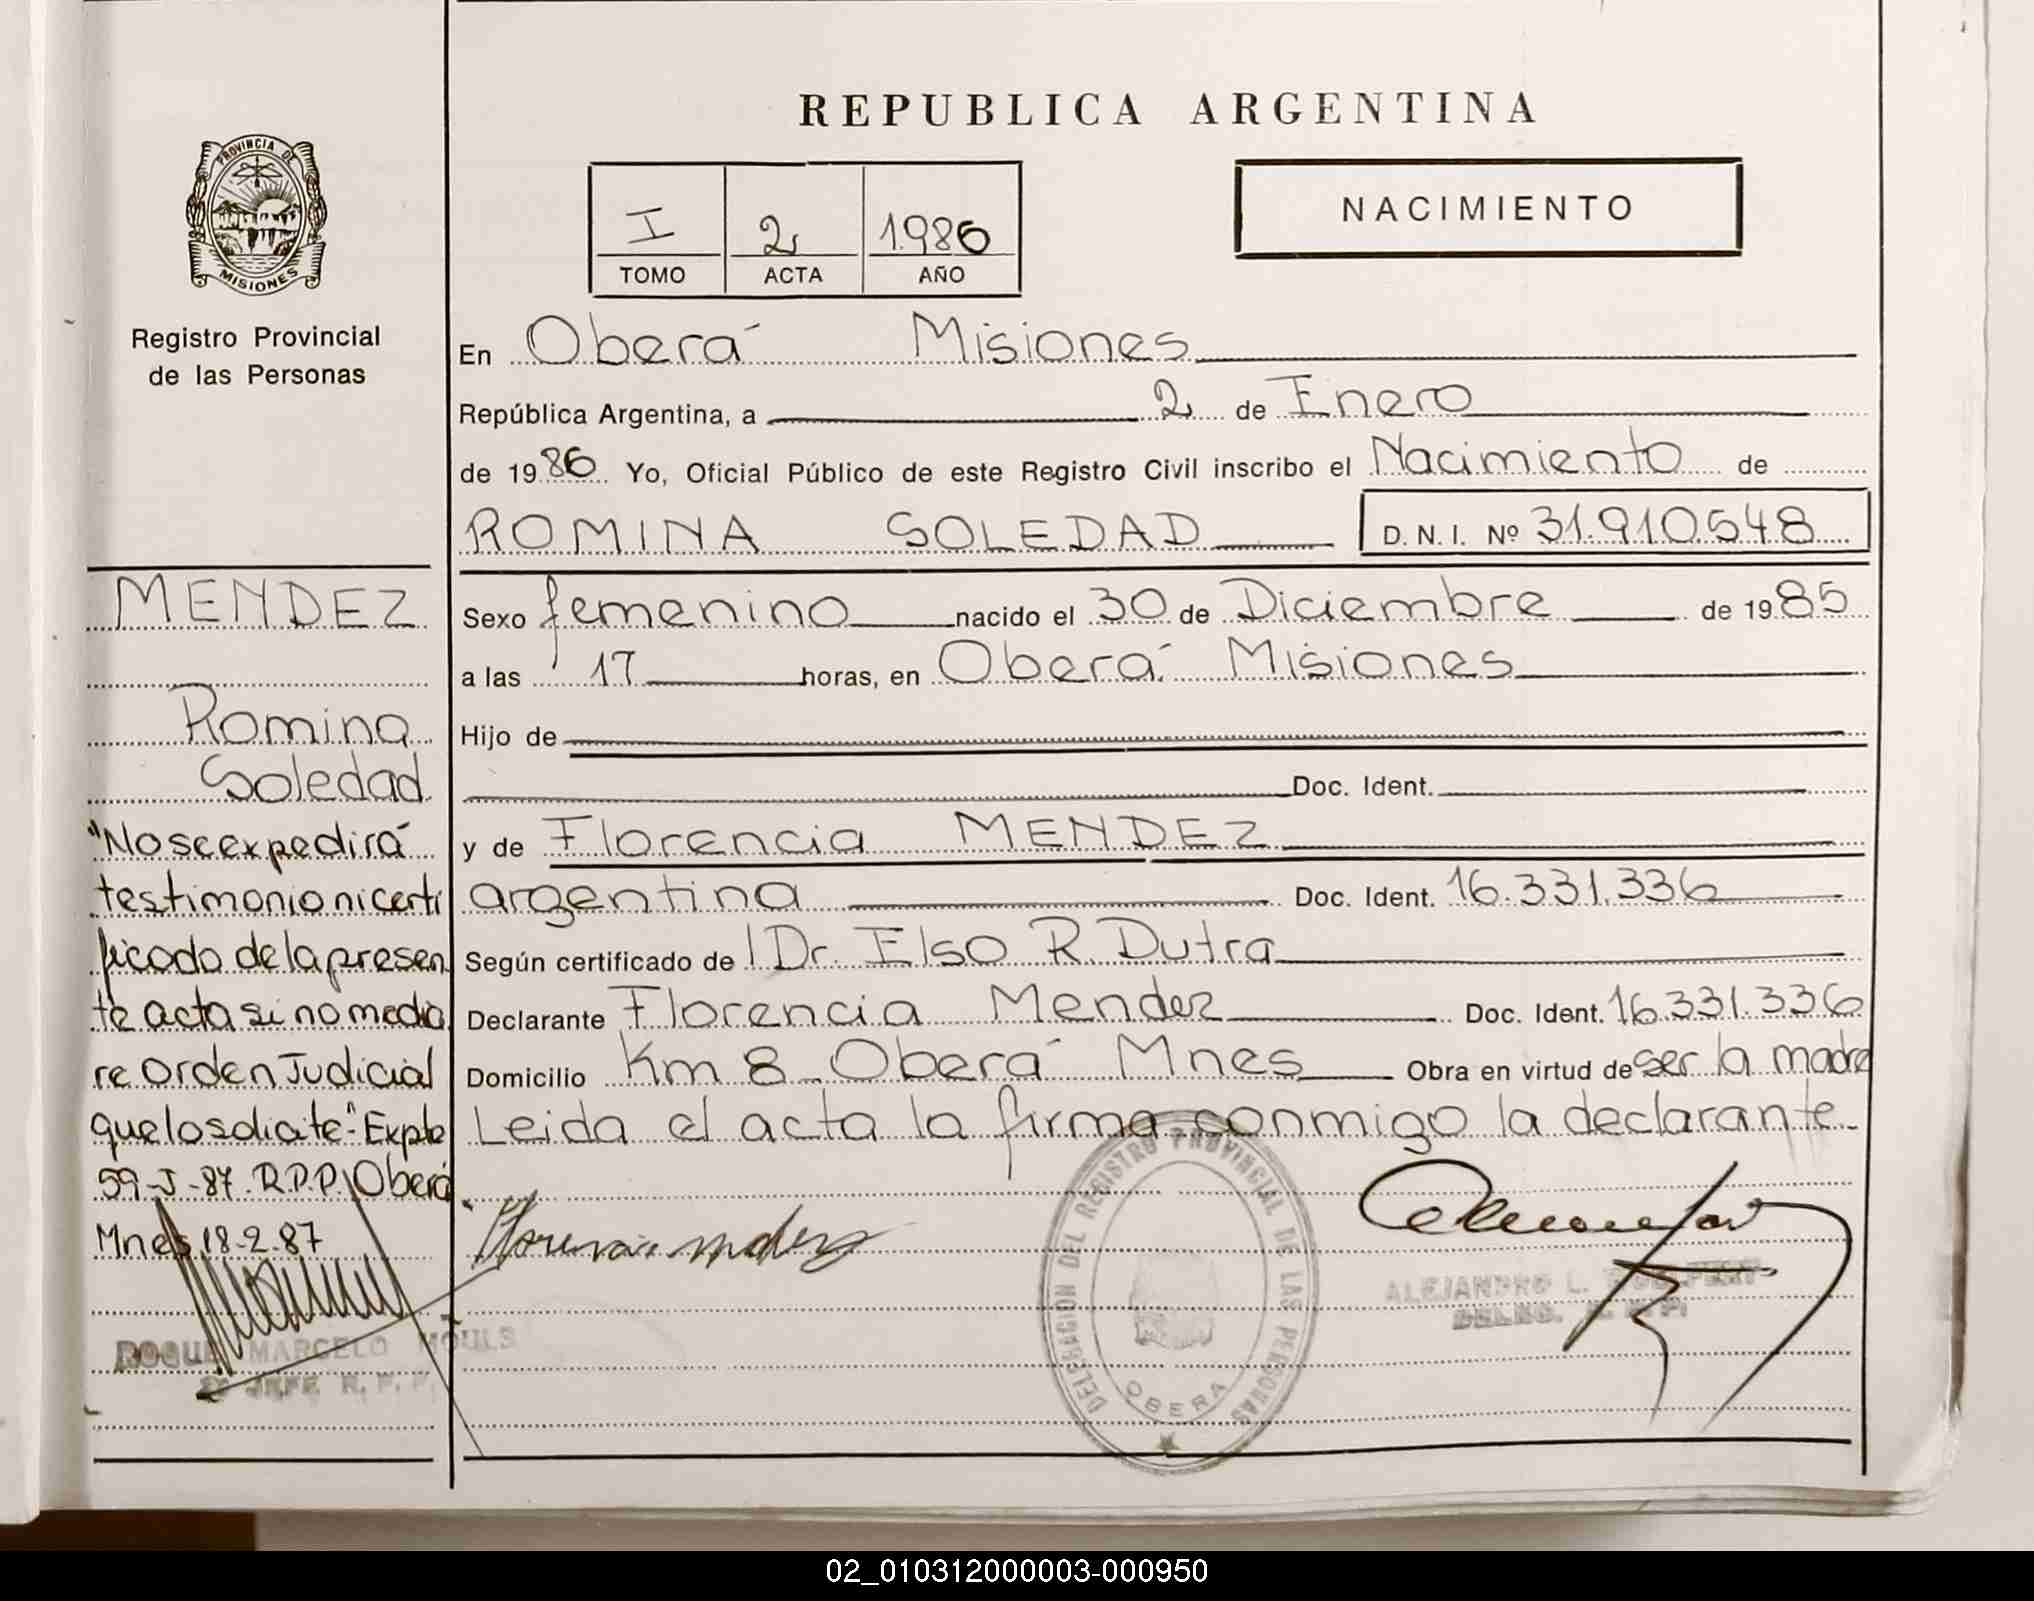 REPUBLICA ARGENTINA
PROVINCIA DE
MISIONES
Registro Provincial
de las Personas
I 2 1986
TOMO ACTA AÑO
NACIMIENTO
En Oberá Misiones
República Argentina, a 2 de Enero
de 1986 Yo, Oficial Público de este Registro Civil inscribo el Nacimiento de
ROMINA SOLEDAD D. N. I. Nº 31.910.548
Sexo femenino nacido el 30 de Diciembre de 1985
a las 17 horas, en Oberá Misiones
Hijo de
Doc. Ident.
y de Florencia MENDEZ
argentina Doc. Ident. 16.331.336
Según certificado de Dr. Elso R. Dutra
Declarante Florencia Mendez Doc. Ident. 16.331.336
Domicilio Km 8 Oberá Mnes Obra en virtud de ser la madre
Leida el acta la firma conmigo la declarante
Florencia
DELEGACION DEL REGISTRO PROVINCIAL DE LAS PERSONAS
OBERA
ALEJANDRO L.
DELEG.
MENDEZ
Romina
Soledad
"No se expedirá
testimonio ni certi
ficado de la presen
te acta si no media
re Orden Judicial
que lo solicite" Expte
59-J-87. R.P.P. Oberá
Mnes 18-2-87
ROQUE MARCELO MOULS
JEFE R. P. P.
02_010312000003-000950